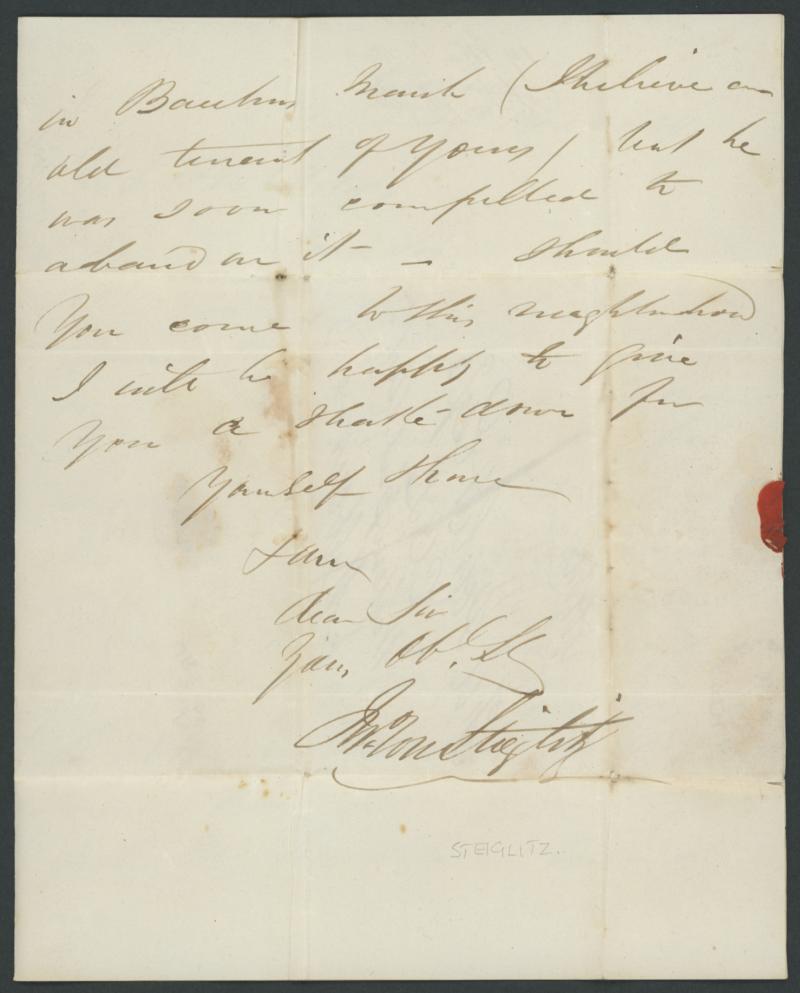 in Bacchus Marsh (I believe an
old tenant of yours) but he
was soon compelled to
abandon it — should
You come to this neighbourhood
I will be happy to give
You a shake-down for
Yourself & horse
I am
dear Sir
Your Ob. St
Jno Von Stieglitz
STEIGLITZ.